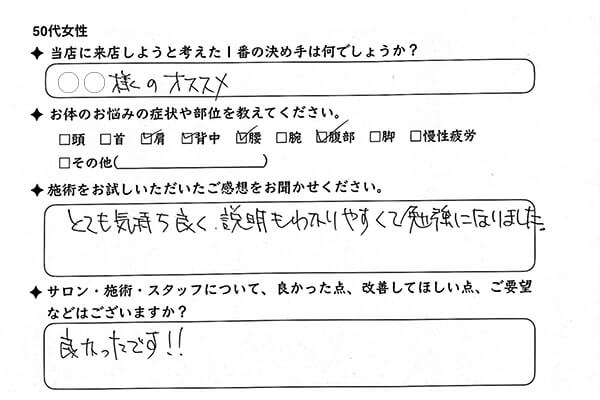 50代女性
✦ 当店に来店しようと考えた1番の決め手は何でしょうか?
○○様くのオススメ
✦ お体のお悩みの症状や部位を教えてください。
□頭 □首 ☑肩 ☑背中 ☑腰 □腕 ☑腹部 □脚 □慢性疲労
□その他( )
✦ 施術をお試しいただいたご感想をお聞かせください。
とても気持ち良く、説明もわかりやすくて勉強になりました。
✦ サロン・施術・スタッフについて、良かった点、改善してほしい点、ご要望
などはございますか?
良かったです!!